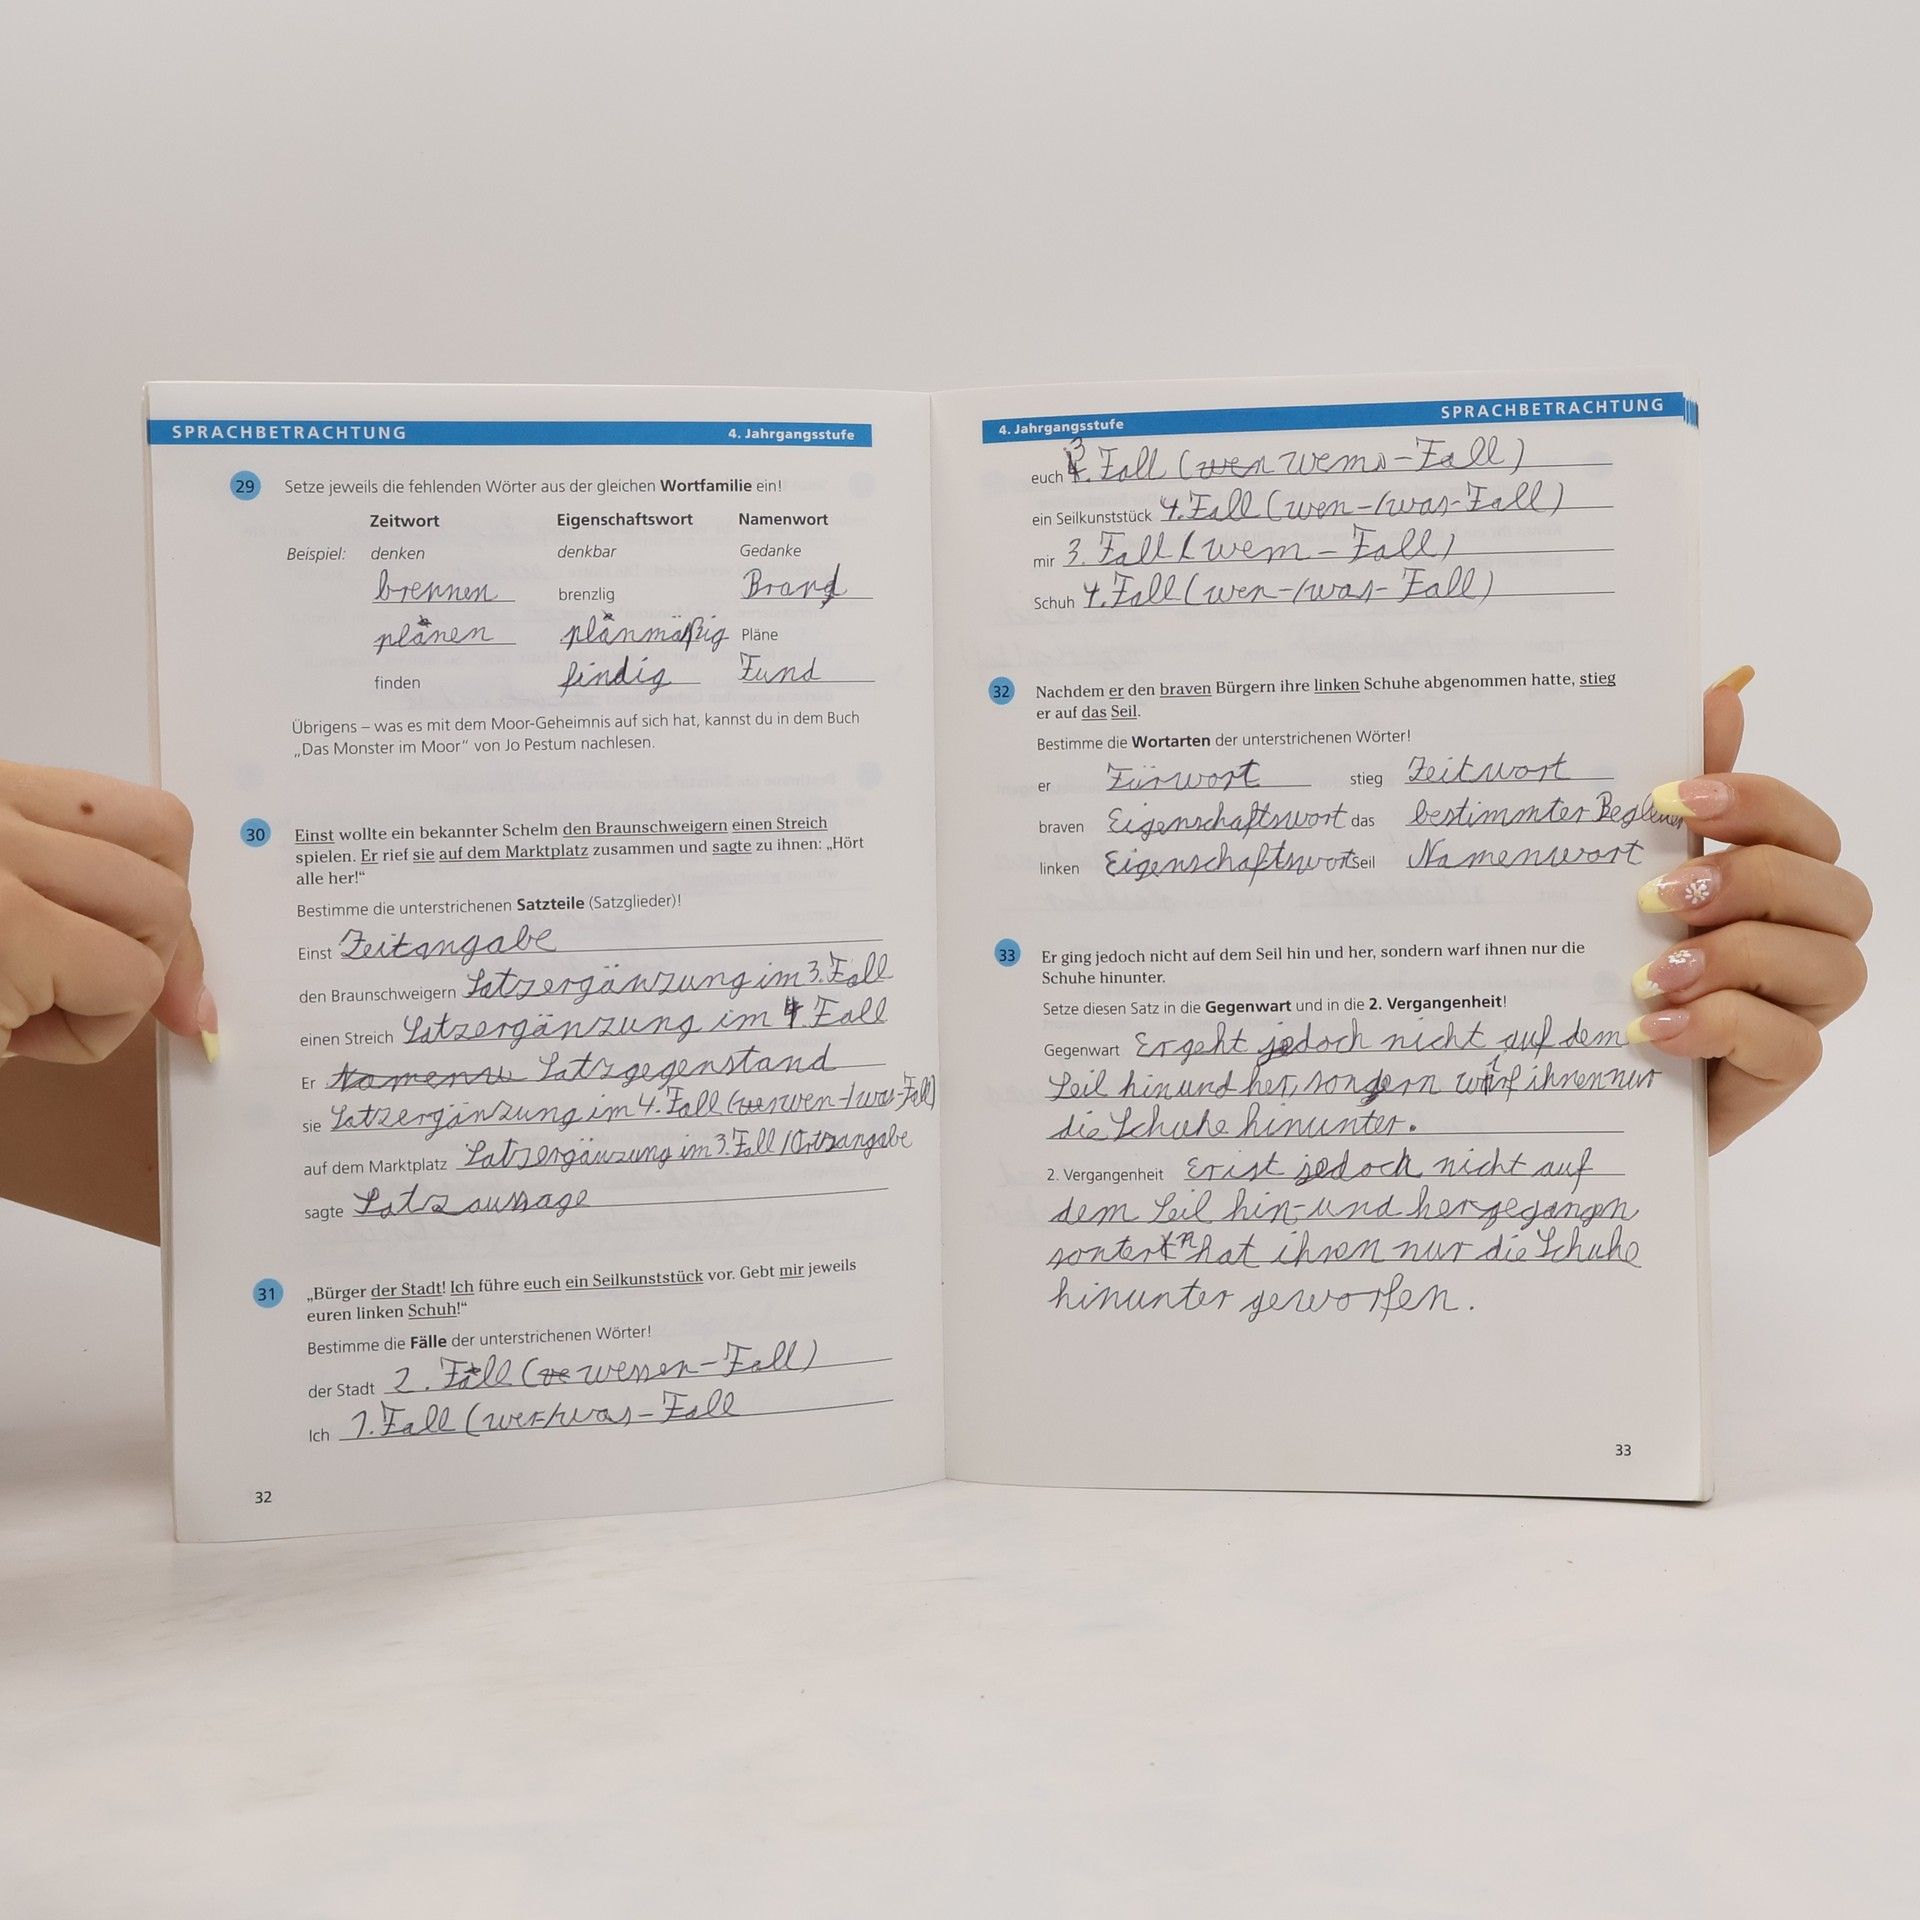 SPRACHBETRACHTUNG 4. Jahrgangsstufe
29 Setze jeweils die fehlenden Wörter aus der gleichen Wortfamilie ein!
Zeitwort Eigenschaftswort Namenwort
Beispiel: denken denkbar Gedanke
brennen brenzlig Brand
planen planmäßig Pläne
finden findig Fund
Übrigens – was es mit dem Moor-Geheimnis auf sich hat, kannst du in dem Buch
„Das Monster im Moor“ von Jo Pestum nachlesen.
30 Einst wollte ein bekannter Schelm den Braunschweigern einen Streich
spielen. Er rief sie auf dem Marktplatz zusammen und sagte zu ihnen: „Hört
alle her!“
Bestimme die unterstrichenen Satzteile (Satzglieder)!
Einst Zeitangabe
den Braunschweigern Satzergänzung im 3. Fall
einen Streich Satzergänzung im 4. Fall
Er Satzgegenstand
sie Satzergänzung im 4. Fall (wen-/was-Fall)
auf dem Marktplatz Satzergänzung im 3. Fall / Ortsangabe
sagte Satzaussage
31 „Bürger der Stadt! Ich führe euch ein Seilkunststück vor. Gebt mir jeweils
euren linken Schuh!“
Bestimme die Fälle der unterstrichenen Wörter!
der Stadt 2. Fall (wessen-Fall)
Ich 1. Fall (wer-/was-Fall
32
4. Jahrgangsstufe SPRACHBETRACHTUNG
euch 3. Fall (wen wem-Fall)
ein Seilkunststück 4. Fall (wen-/was-Fall)
mir 3. Fall (wem-Fall)
Schuh 4. Fall (wen-/was-Fall)
32 Nachdem er den braven Bürgern ihre linken Schuhe abgenommen hatte, stieg
er auf das Seil.
Bestimme die Wortarten der unterstrichenen Wörter!
er Fürwort stieg Zeitwort
braven Eigenschaftswort das bestimmter Begleiter
linken Eigenschaftswort Seil Namenwort
33 Er ging jedoch nicht auf dem Seil hin und her, sondern warf ihnen nur die
Schuhe hinunter.
Setze diesen Satz in die Gegenwart und in die 2. Vergangenheit!
Gegenwart Er geht jedoch nicht auf dem
Seil hin und her, sondern wirf ihnen nur
die Schuhe hinunter.
2. Vergangenheit Er ist jedoch nicht auf
dem Seil hin- und hergegangen
sontern hat ihnen nur die Schuhe
hinunter geworfen.
33